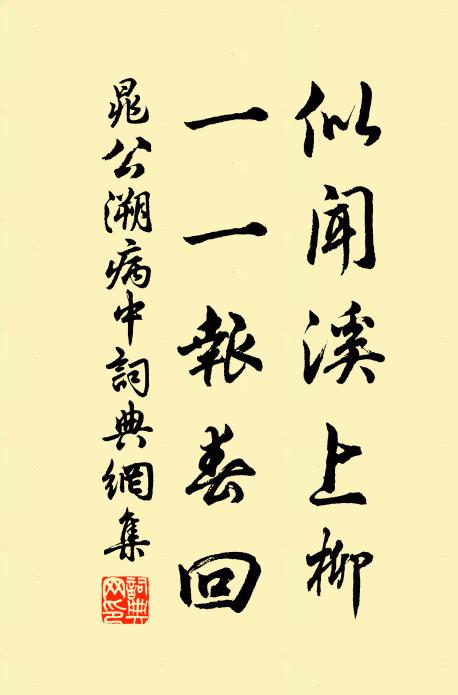 似闻溪上柳
一一報春回
晁公溯病中詞典網集
詞典网印